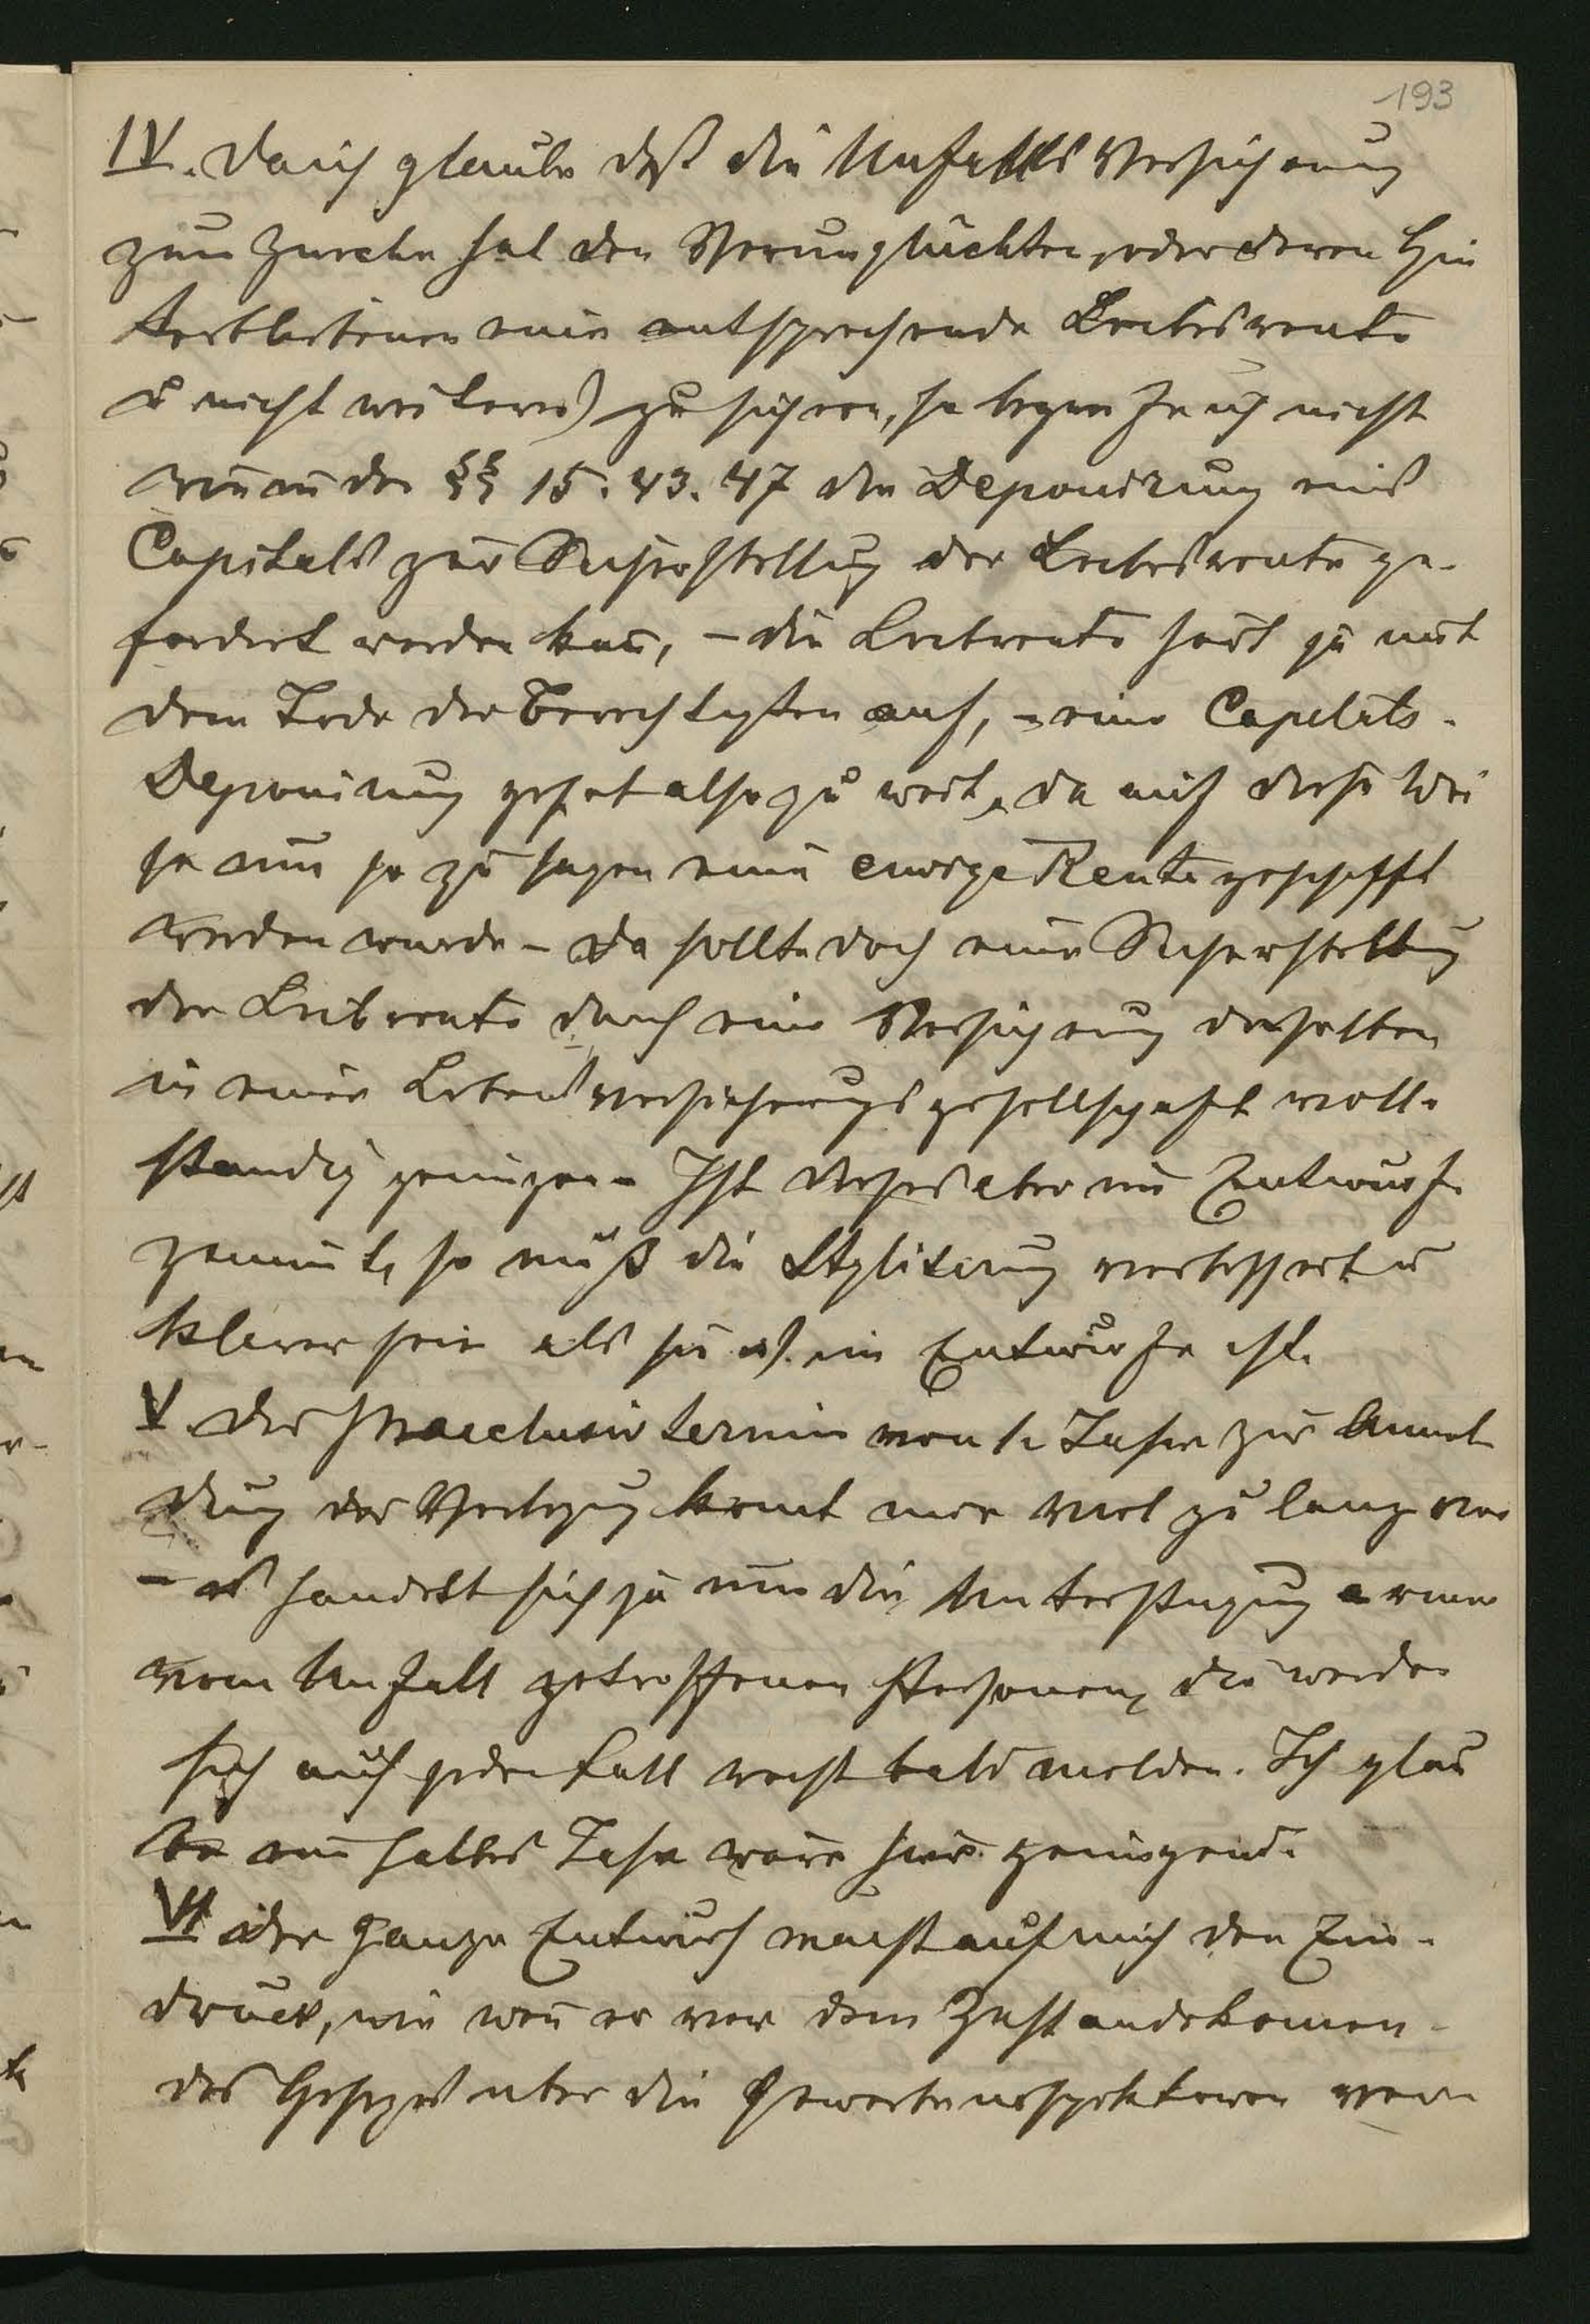 193
IV. Da ich glaube daß die Unfalls Versicherung
zum Zwecke hat den Verunglückten, oder deren Hin
terbliebenen eine entsprechende Leibesrente
(u nicht weiteres) zu sichern, so begreife ich nicht
wie in den §§ 15. 43. 47 die Deponirung eines
Capitals zur Sicherstellung der Leibesrente ge-
fordert werden kan̄, – die Leibrente hört ja mit
dem Tode des Berechtigten auf, – eine Capitals-
Deponirung geht also zu weit, da auf diese Wei
se nun so zu sagen eine ewige Rente geschafft
werden wurde – da sollte doch eine Sicherstellung
der Leibrente durch eine Versicherung derselben
in einer Lebensversicherungsgesellschaft voll-
standig genügen – Ist dieses aber im Entwurfe
gemeint, so muß die Stylisirung verbessert u
klarer sein als sie im Entwurfe ist.
V. Der Praeclusiv termin von 1. Jahre zur Anmel
dung der kom̄t mir viel zu lang vor
– es handelt sich ja um die Unterstützung armer
vom Unfall getroffenen Personen, die werden
sich auf jeden Fall recht bald melden. Ich glau
be ein halbes Jahr wäre hier genügend.
VI Der ganze Entwurf macht auf mich den Ein-
druck, wie wen̄ er vor dem Zustandekomen
des Gesetzes uber die Gewerbeinspektoren ver